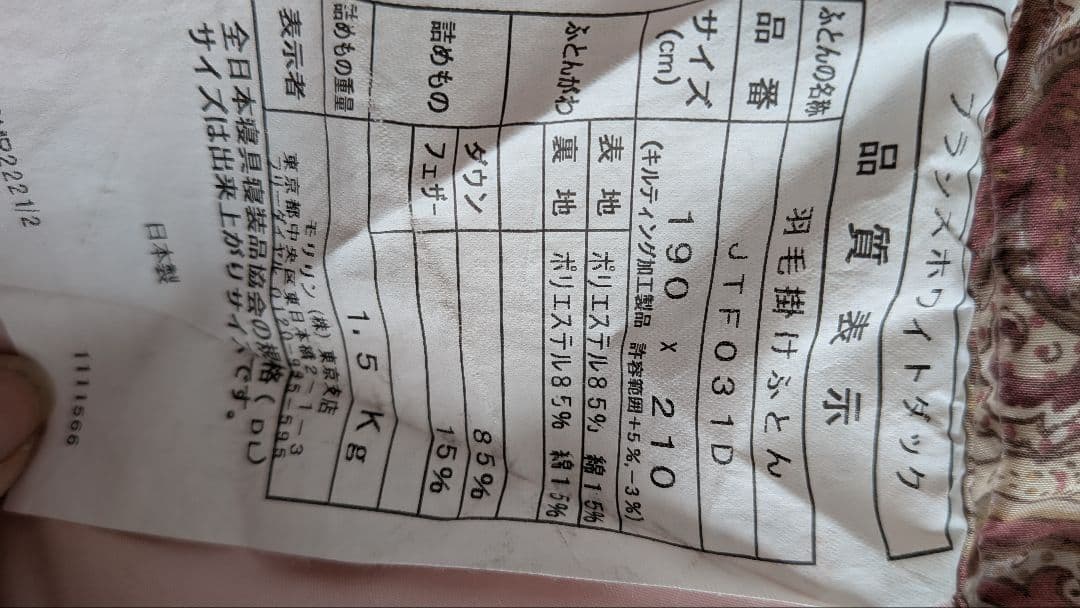 フランスホワイトダック
品質表示
ふとんの名称 羽毛掛けふとん
品番 JTF031D
サイズ(cm) 190 x 210
(キルティング加工製品 許容範囲+5%,-3%)
ふとんがわ 表地 ポリエステル85% 綿15%
裏地 ポリエステル85% 綿15%
詰めもの ダウン 85%
フェザー 15%
詰めもの重量 1.5 Kg
表示者 モリリン(株)東京支店
東京都中央区東日本橋2-1-3
フリーダイヤル 0120
全日本寝具寝装品協会の規格(DL)
サイズは出来上がりサイズです。
日本製
22212
1111566